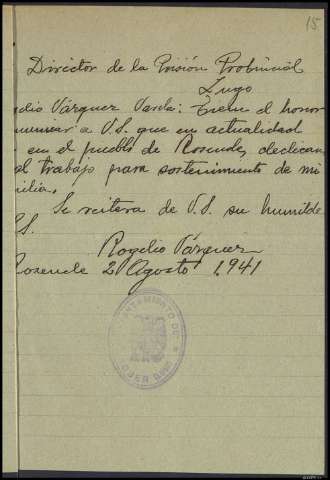 15
Director de la Prisión Probincial
Lugo
elio Vázquez Varela: Tiene el honor
municar a V.S. que en actualidad
en el pueblo de Rosende, dedican
al trabajo para sostenimiento de mi
ilia.
Se reitera de V.S. su humilde
S.S.
Rogelio Vázquez
Rosende 2 Agosto 1941
AYUNTAMIENTO DE